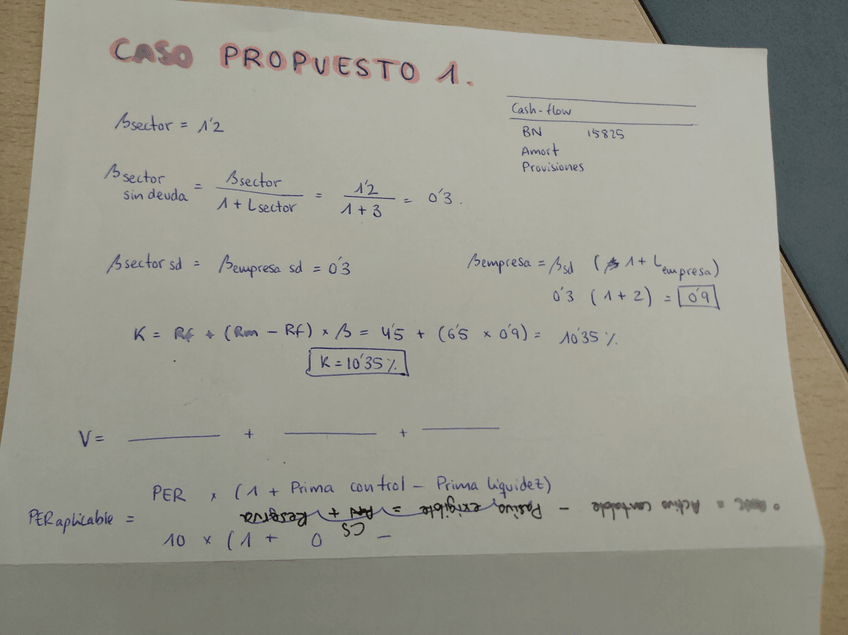 CASO PROPUESTO 1.
βsector = 1'2
Cash-flow
BN 15825
Amort
Provisiones
βsector sin deuda = βsector / 1 + Lsector = 1'2 / 1 + 3 = 0'3.
βsector sd = βempresa sd = 0'3
βempresa = βsd (1 + Lempresa)
0'3 (1 + 2) = 0'9
K = Rf + (Rm - Rf) × β = 4'5 + (6'5 × 0'9) = 10'35 %.
K = 10'35 %
V = ____ + ____ + ____
PER aplicable = PER × (1 + Prima control - Prima liquidez)
10 × (1 + 0 -
= Activo contable - Pasivo exigible = CS + Reserva